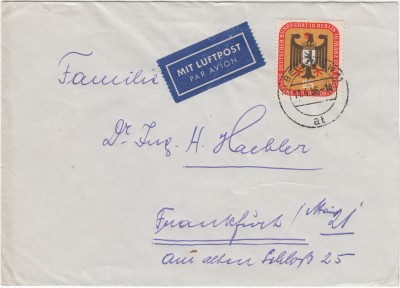 Familie
MIT LUFTPOST
PAR AVION
DEUTSCHER BUNDESRAT IN BERLIN
at
Dr. Ing. H. Haebler
Frankfurt/Main
21
Am alten Schloß 25